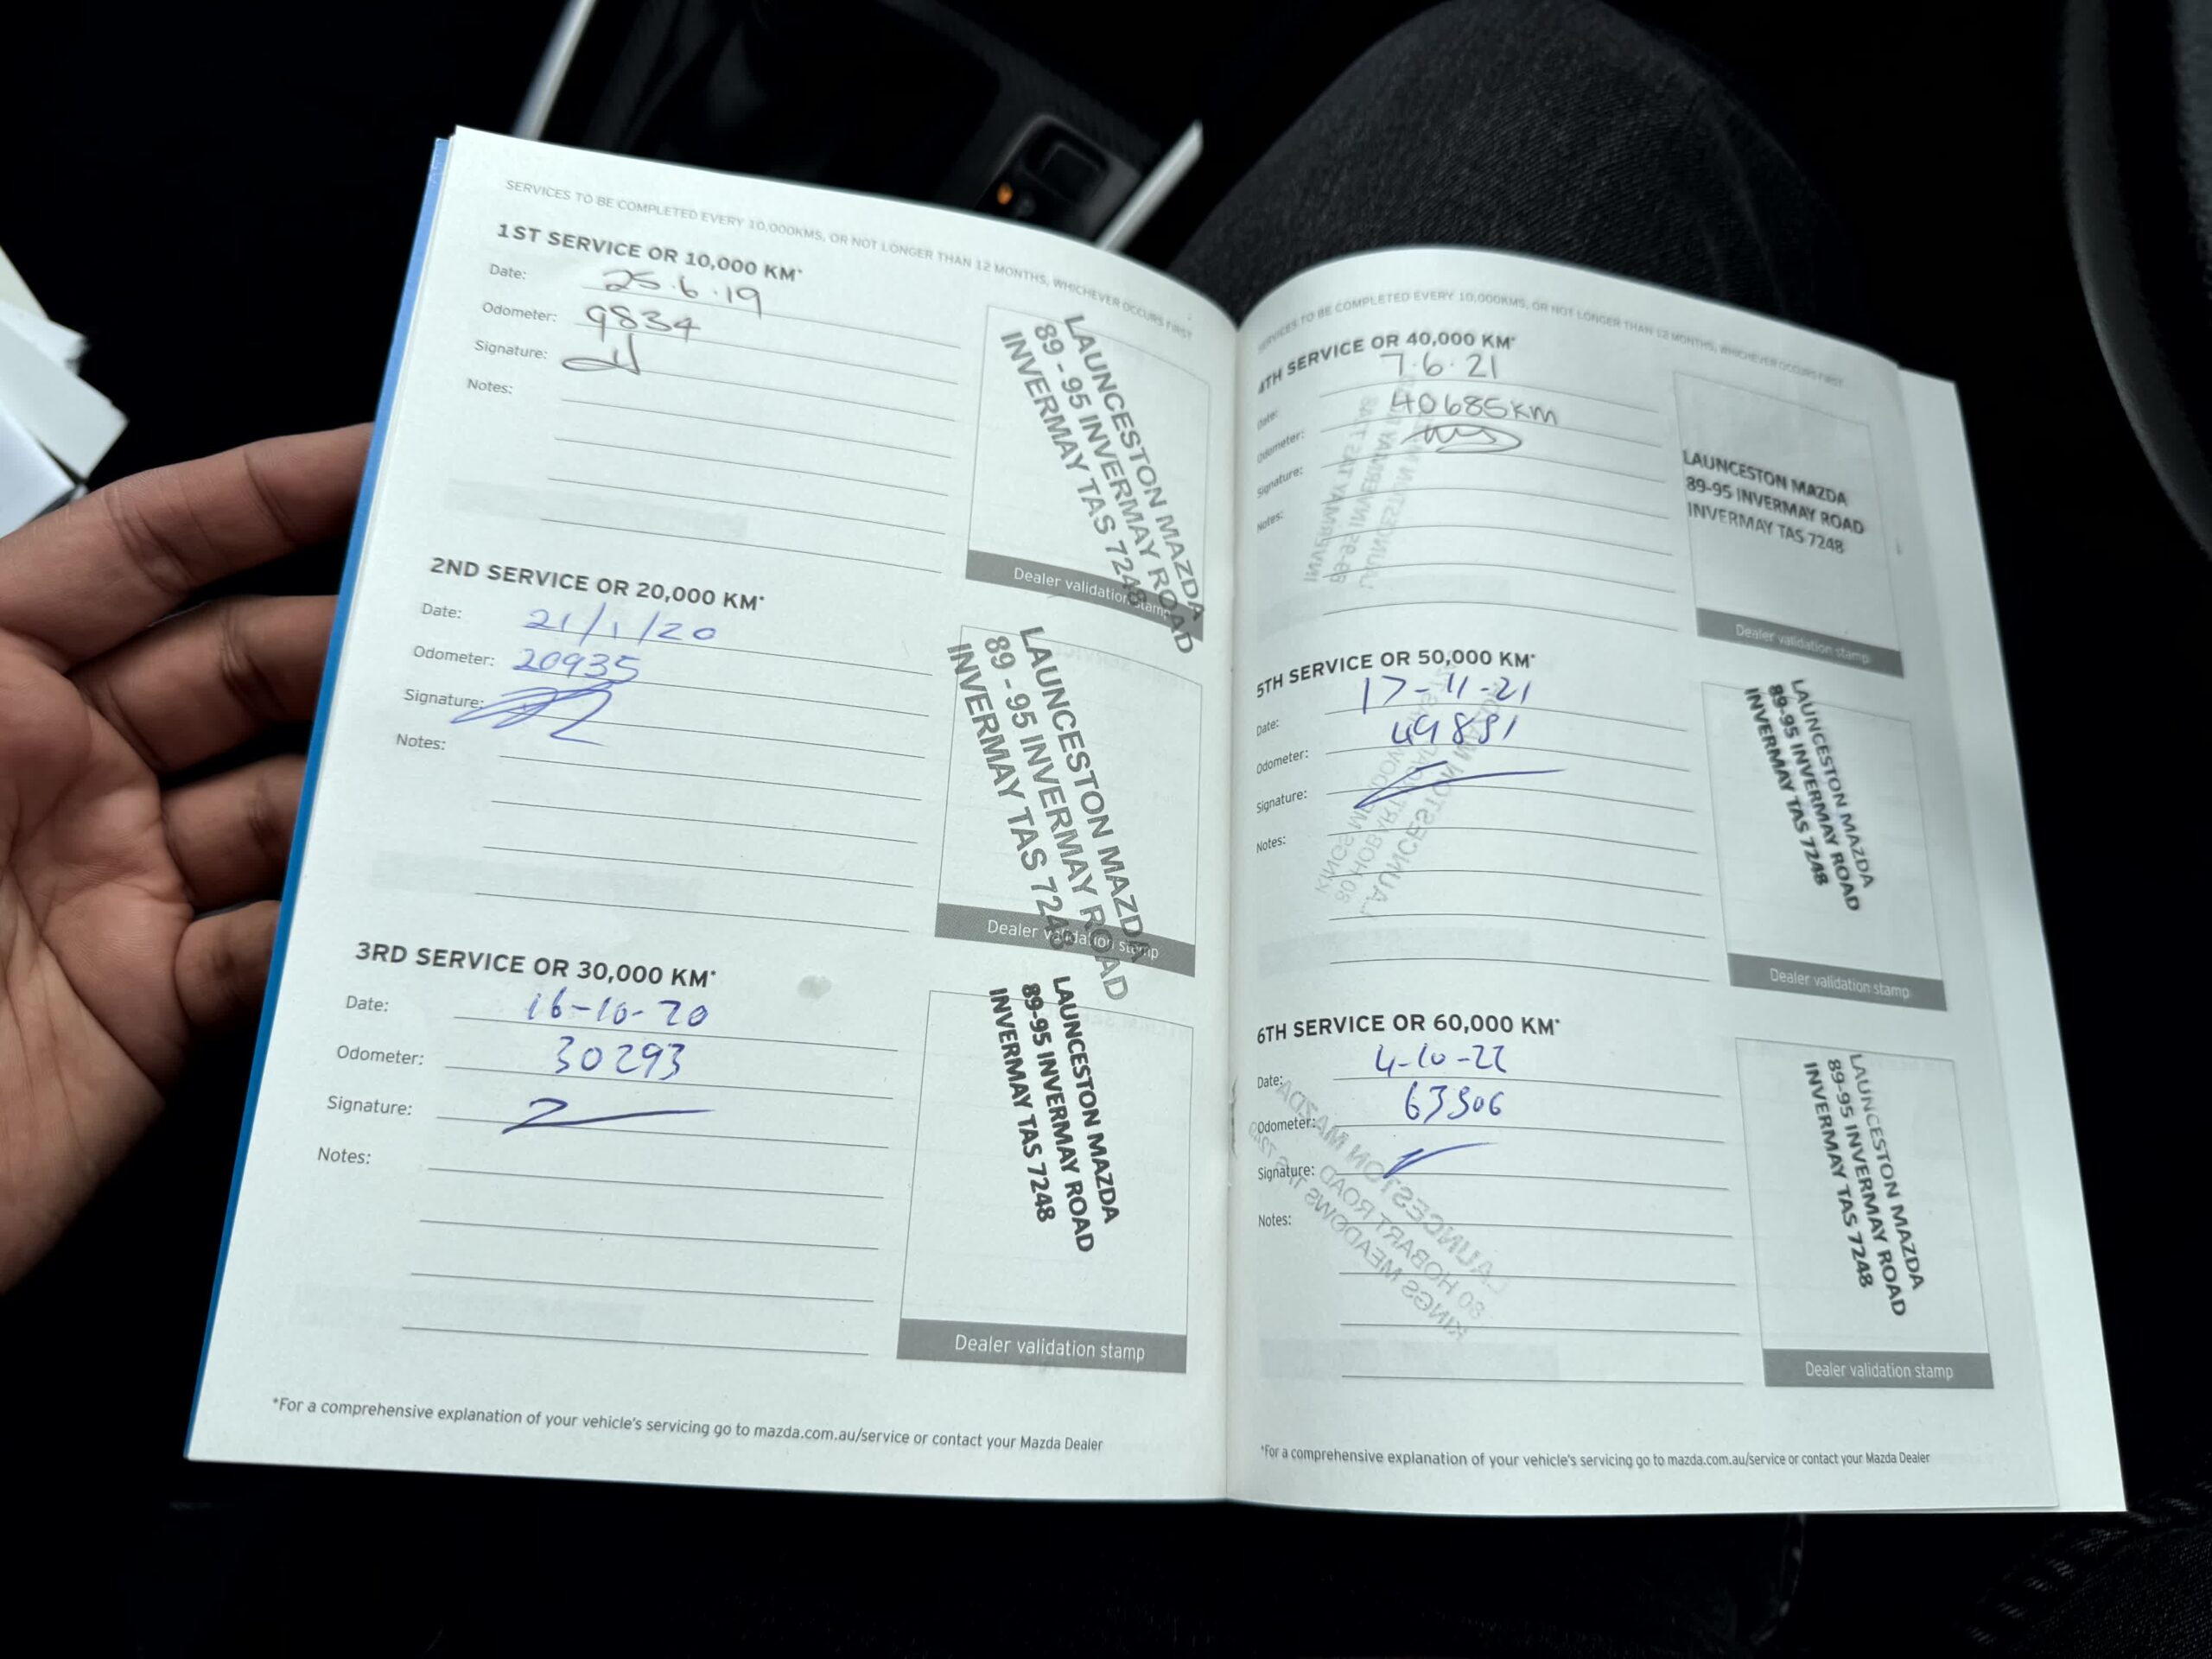 SERVICES TO BE COMPLETED EVERY 10,000KMS, OR NOT LONGER THAN 12 MONTHS, WHICHEVER OCCURS FIRST
1ST SERVICE OR 10,000 KM*
Date: 25.6.19
Odometer: 9834
Signature:
Notes:
LAUNCESTON MAZDA
89 - 95 INVERMAY ROAD
INVERMAY TAS 7248
Dealer validation stamp
2ND SERVICE OR 20,000 KM*
Date: 21/1/20
Odometer: 20935
Signature:
Notes:
LAUNCESTON MAZDA
89 - 95 INVERMAY ROAD
INVERMAY TAS 7248
Dealer validation stamp
3RD SERVICE OR 30,000 KM*
Date: 16-10-20
Odometer: 30293
Signature:
Notes:
LAUNCESTON MAZDA
89-95 INVERMAY ROAD
INVERMAY TAS 7248
Dealer validation stamp
*For a comprehensive explanation of your vehicle's servicing go to mazda.com.au/service or contact your Mazda Dealer
SERVICES TO BE COMPLETED EVERY 10,000KMS, OR NOT LONGER THAN 12 MONTHS, WHICHEVER OCCURS FIRST
4TH SERVICE OR 40,000 KM*
Date: 7.6.21
Odometer: 40685km
Signature:
Notes:
LAUNCESTON MAZDA
89-95 INVERMAY ROAD
INVERMAY TAS 7248
Dealer validation stamp
5TH SERVICE OR 50,000 KM*
Date: 17-11-21
Odometer:
Signature:
Notes:
LAUNCESTON MAZDA
89-95 INVERMAY ROAD
INVERMAY TAS 7248
Dealer validation stamp
6TH SERVICE OR 60,000 KM*
Date: 4-10-22
Odometer:
Signature:
Notes:
LAUNCESTON MAZDA
89-95 INVERMAY ROAD
INVERMAY TAS 7248
Dealer validation stamp
*For a comprehensive explanation of your vehicle's servicing go to mazda.com.au/service or contact your Mazda Dealer